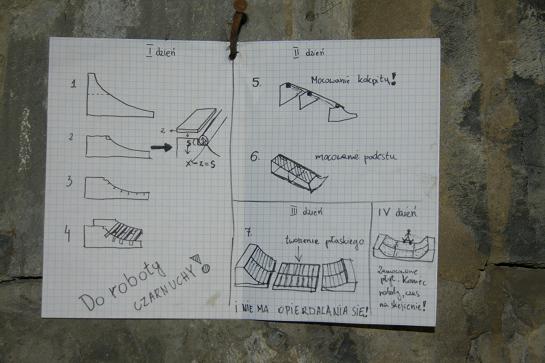 I dzień
1
2
3
4
z
x-z=s
Do roboty
CZARNUCHY!
II dzień
5.
Mocowanie kokpitu!
6.
mocowanie podestu
III dzień
7.
tworzenie płaskiego
I NIE MA OPIERDALANIA SIĘ!
IV dzień
Zamocowanie
płyt. Koniec
roboty, czas